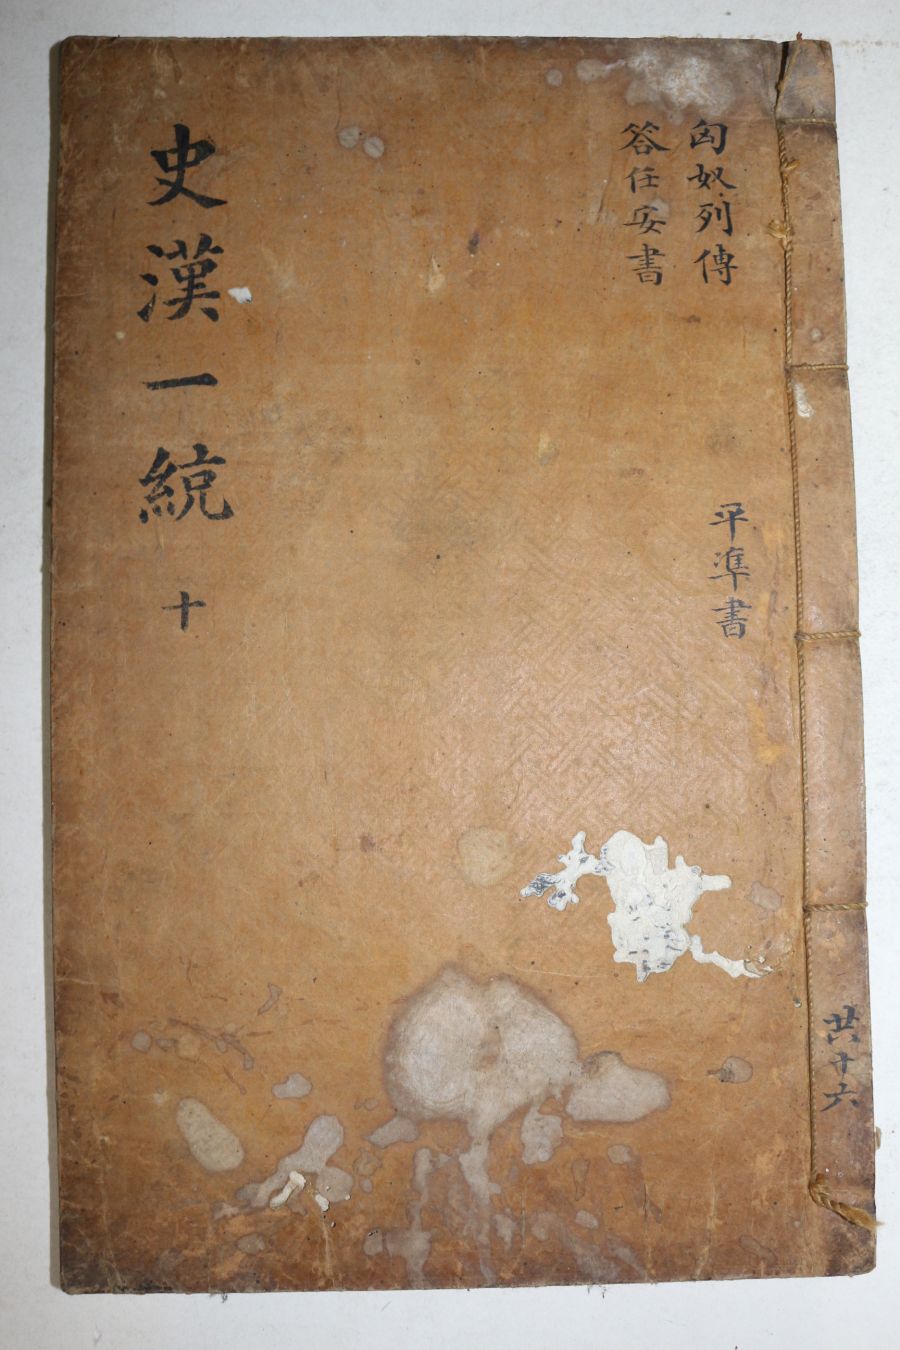 匈奴列傳
答任安書
平準書
史漢一統 十
共十六